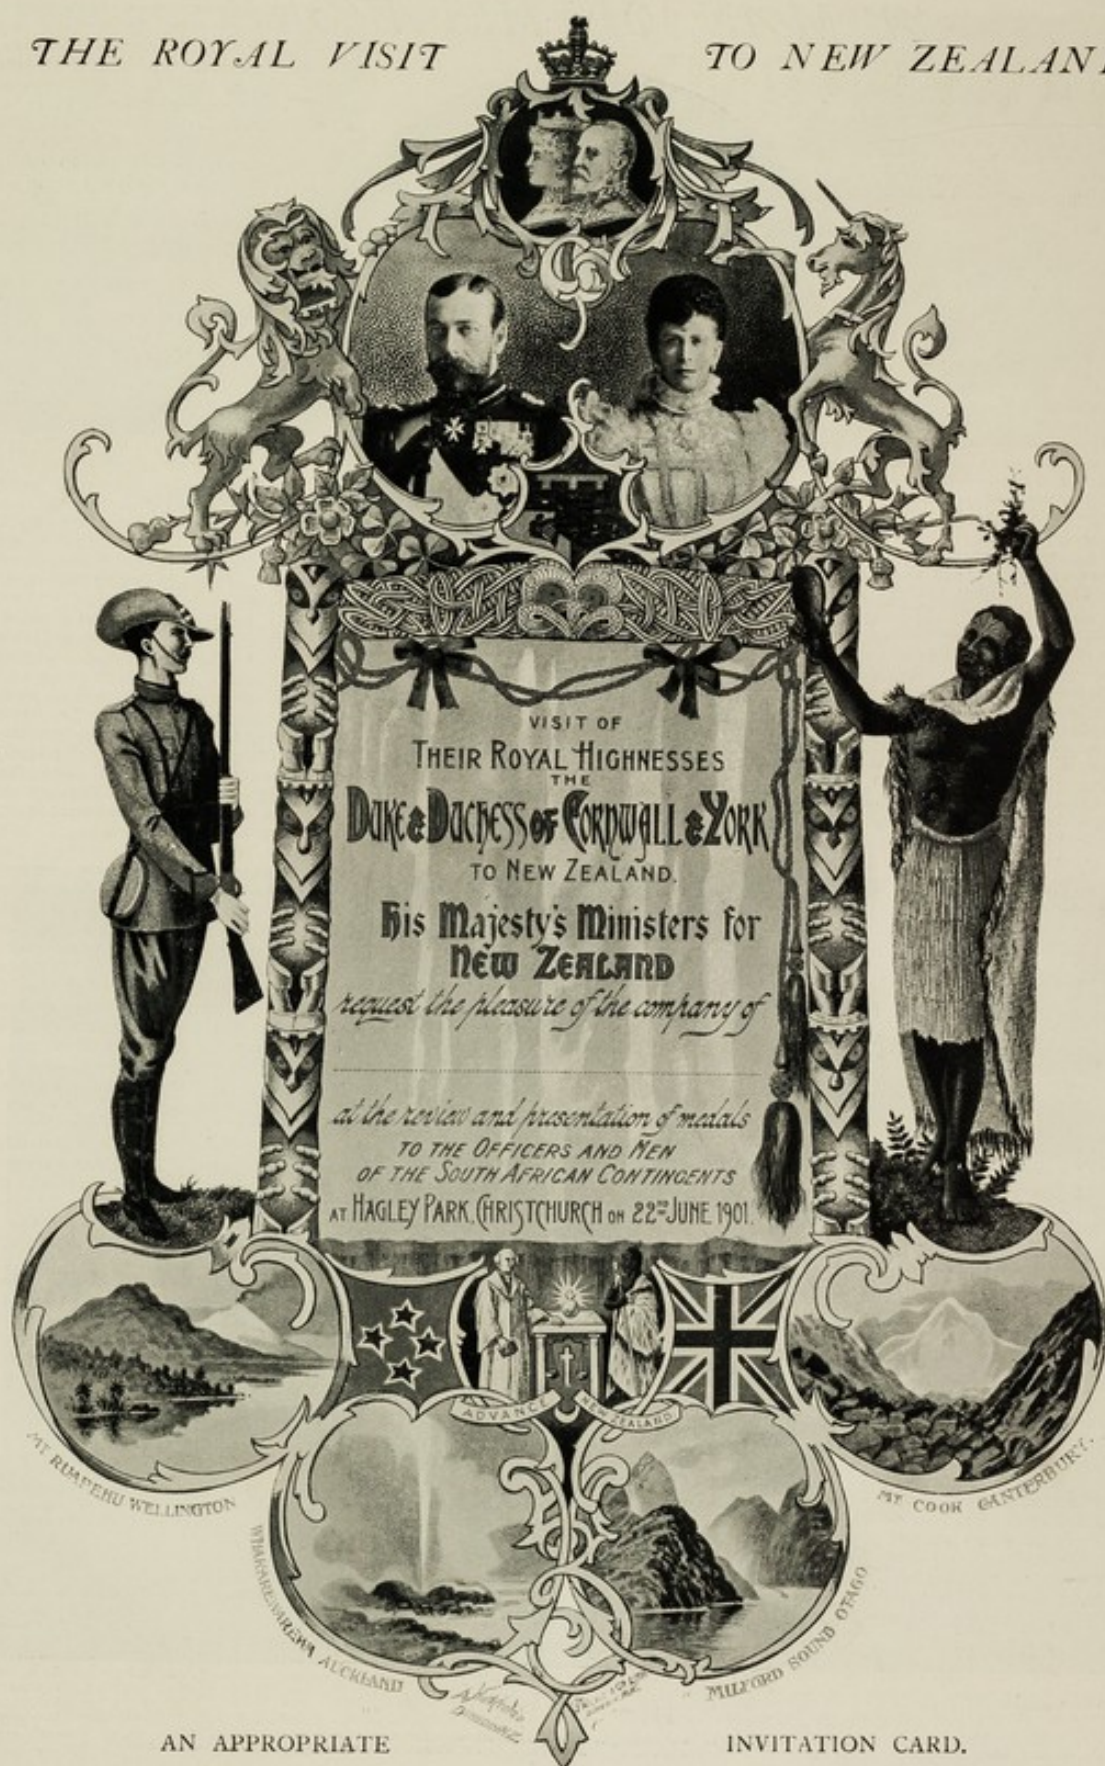 THE ROYAL VISIT TO NEW ZEALAN
VISIT OF
THEIR ROYAL HIGHNESSES
THE
DUKE & DUCHESS OF CORNWALL & YORK
TO NEW ZEALAND.
His Majesty's Ministers for
NEW ZEALAND
request the pleasure of the company of
at the review and presentation of medals
TO THE OFFICERS AND MEN
OF THE SOUTH AFRICAN CONTINGENTS
AT HAGLEY PARK, CHRISTCHURCH ON 22ND JUNE 1901.
ADVANCE NEW ZEALAND
MT RUAPEHU WELLINGTON
MT COOK CANTERBURY.
WHAKAREWAREWA AUCKLAND
MILFORD SOUND OTAGO
AN APPROPRIATE INVITATION CARD.